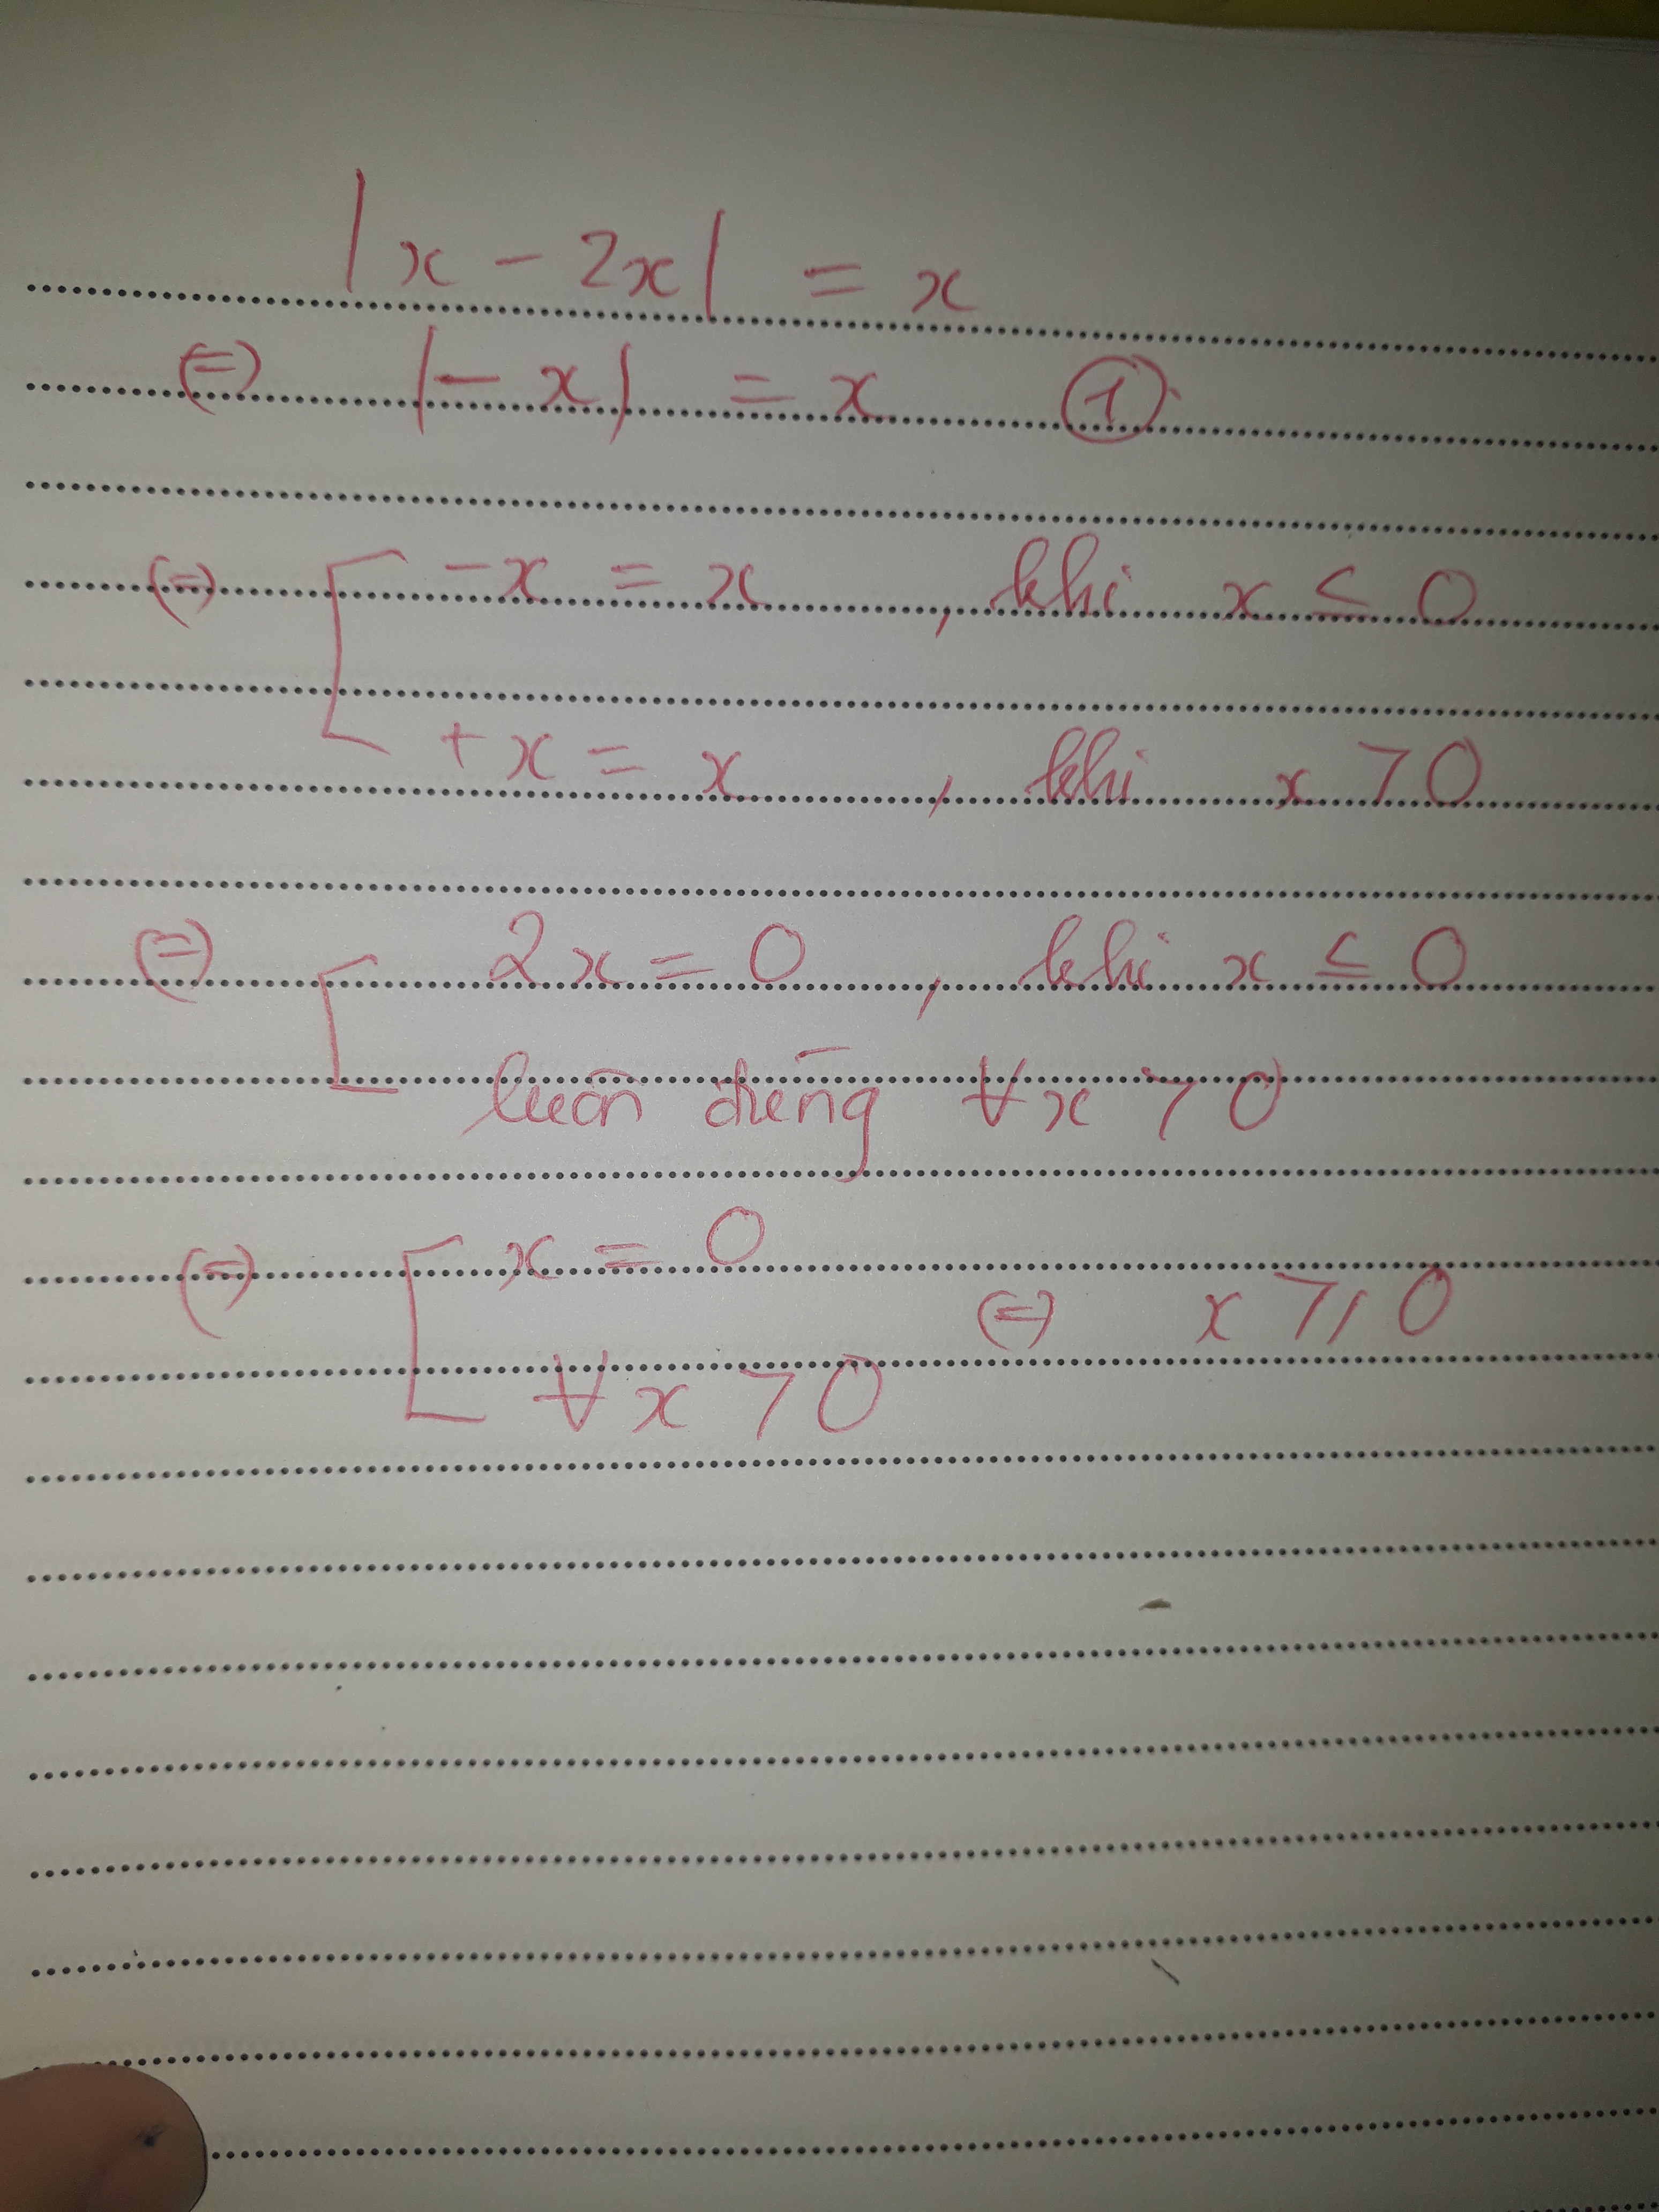 |x - 2x| = x
(=) |- x| = x ①
(=) [ -x = x , khi x ≤ 0
+ x = x , khi x > 0
(=) [ 2x = 0 , khi x ≤ 0
luôn đúng ∀x > 0
(=) [ x = 0 (=) x ⩾ 0
∀x > 0